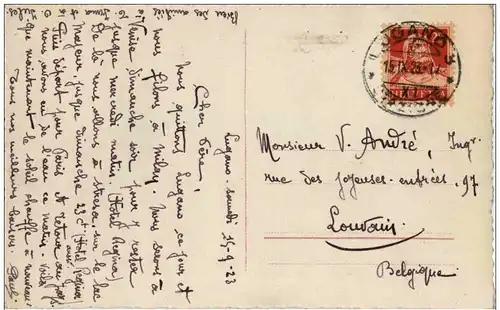 Lugano - samedi 15-9-23
Cher Père!
nous quittons Lugano ce jour et
filons à Milan. nous serons à
Venise dimanche soir pour y rester
jusque mercredi matin (Hotel Regina)
De là nous allons à Stresa sur le lac
Majeur, jusque dimanche 23 ct (Hotel Regina)
Puis départ pour Paris et retour au pays.
nous avons eu de l'eau ce matin.
que maintenant le soleil chauffe à nouveau
Tous nos meilleurs baisers.
Paul
LUGANO
Monsieur V. André, Ingr
rue des joyeuses-entrées, 97
Louvain
Belgique